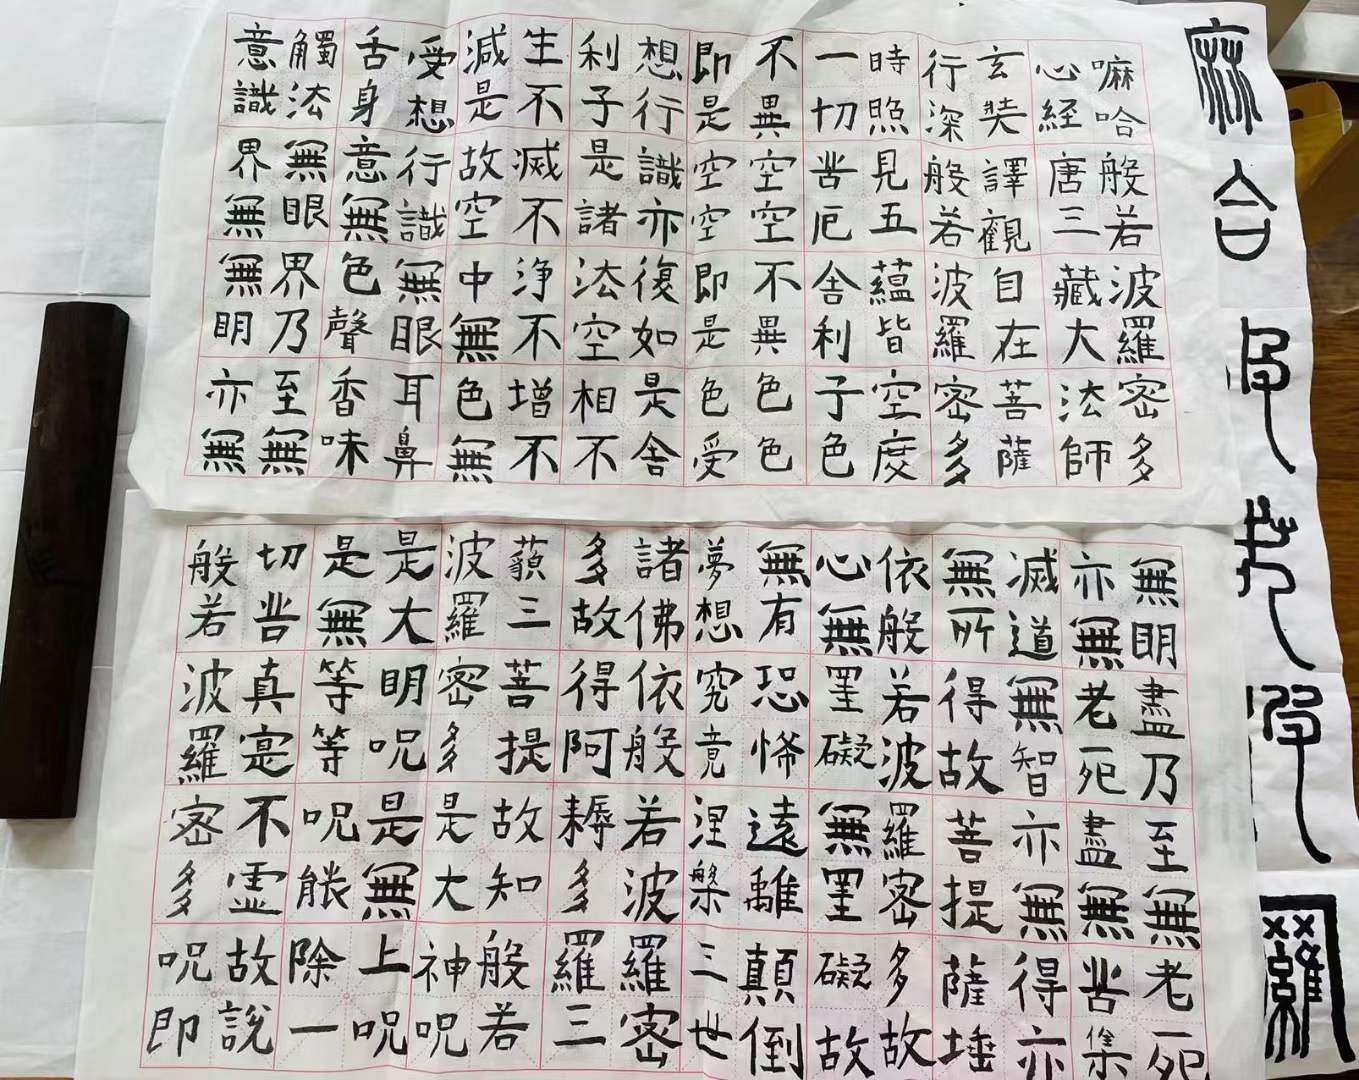 麻合
羅
嘛哈般若波羅密多
心経唐三藏大法師
玄奘譯觀自在菩薩
行深般若波羅密多
時照見五蘊皆空度
一切苦厄舍利子色
不異空空不異色色
即是空空即是色受
想行識亦復如是舍
利子是諸法空相不
生不滅不浄不增不
減是故空中無色無
受想行識無眼耳鼻
舌身意無色聲香味
觸法無眼界乃至無
意識界無無明亦無
無明盡乃至無老死
亦無老死盡無苦集
滅道無智亦無得亦
無所得故菩提薩埵
依般若波羅密多故
心無罣礙無罣礙故
無有恐怖遠離顛倒
夢想究竟涅槃三世
諸佛依般若波羅密
多故得阿耨多羅三
藐三菩提故知般若
波羅密多是大神呪
是大明呪是無上呪
是無等等呪能除一
切苦真寔不霊故說
般若波羅密多呪即